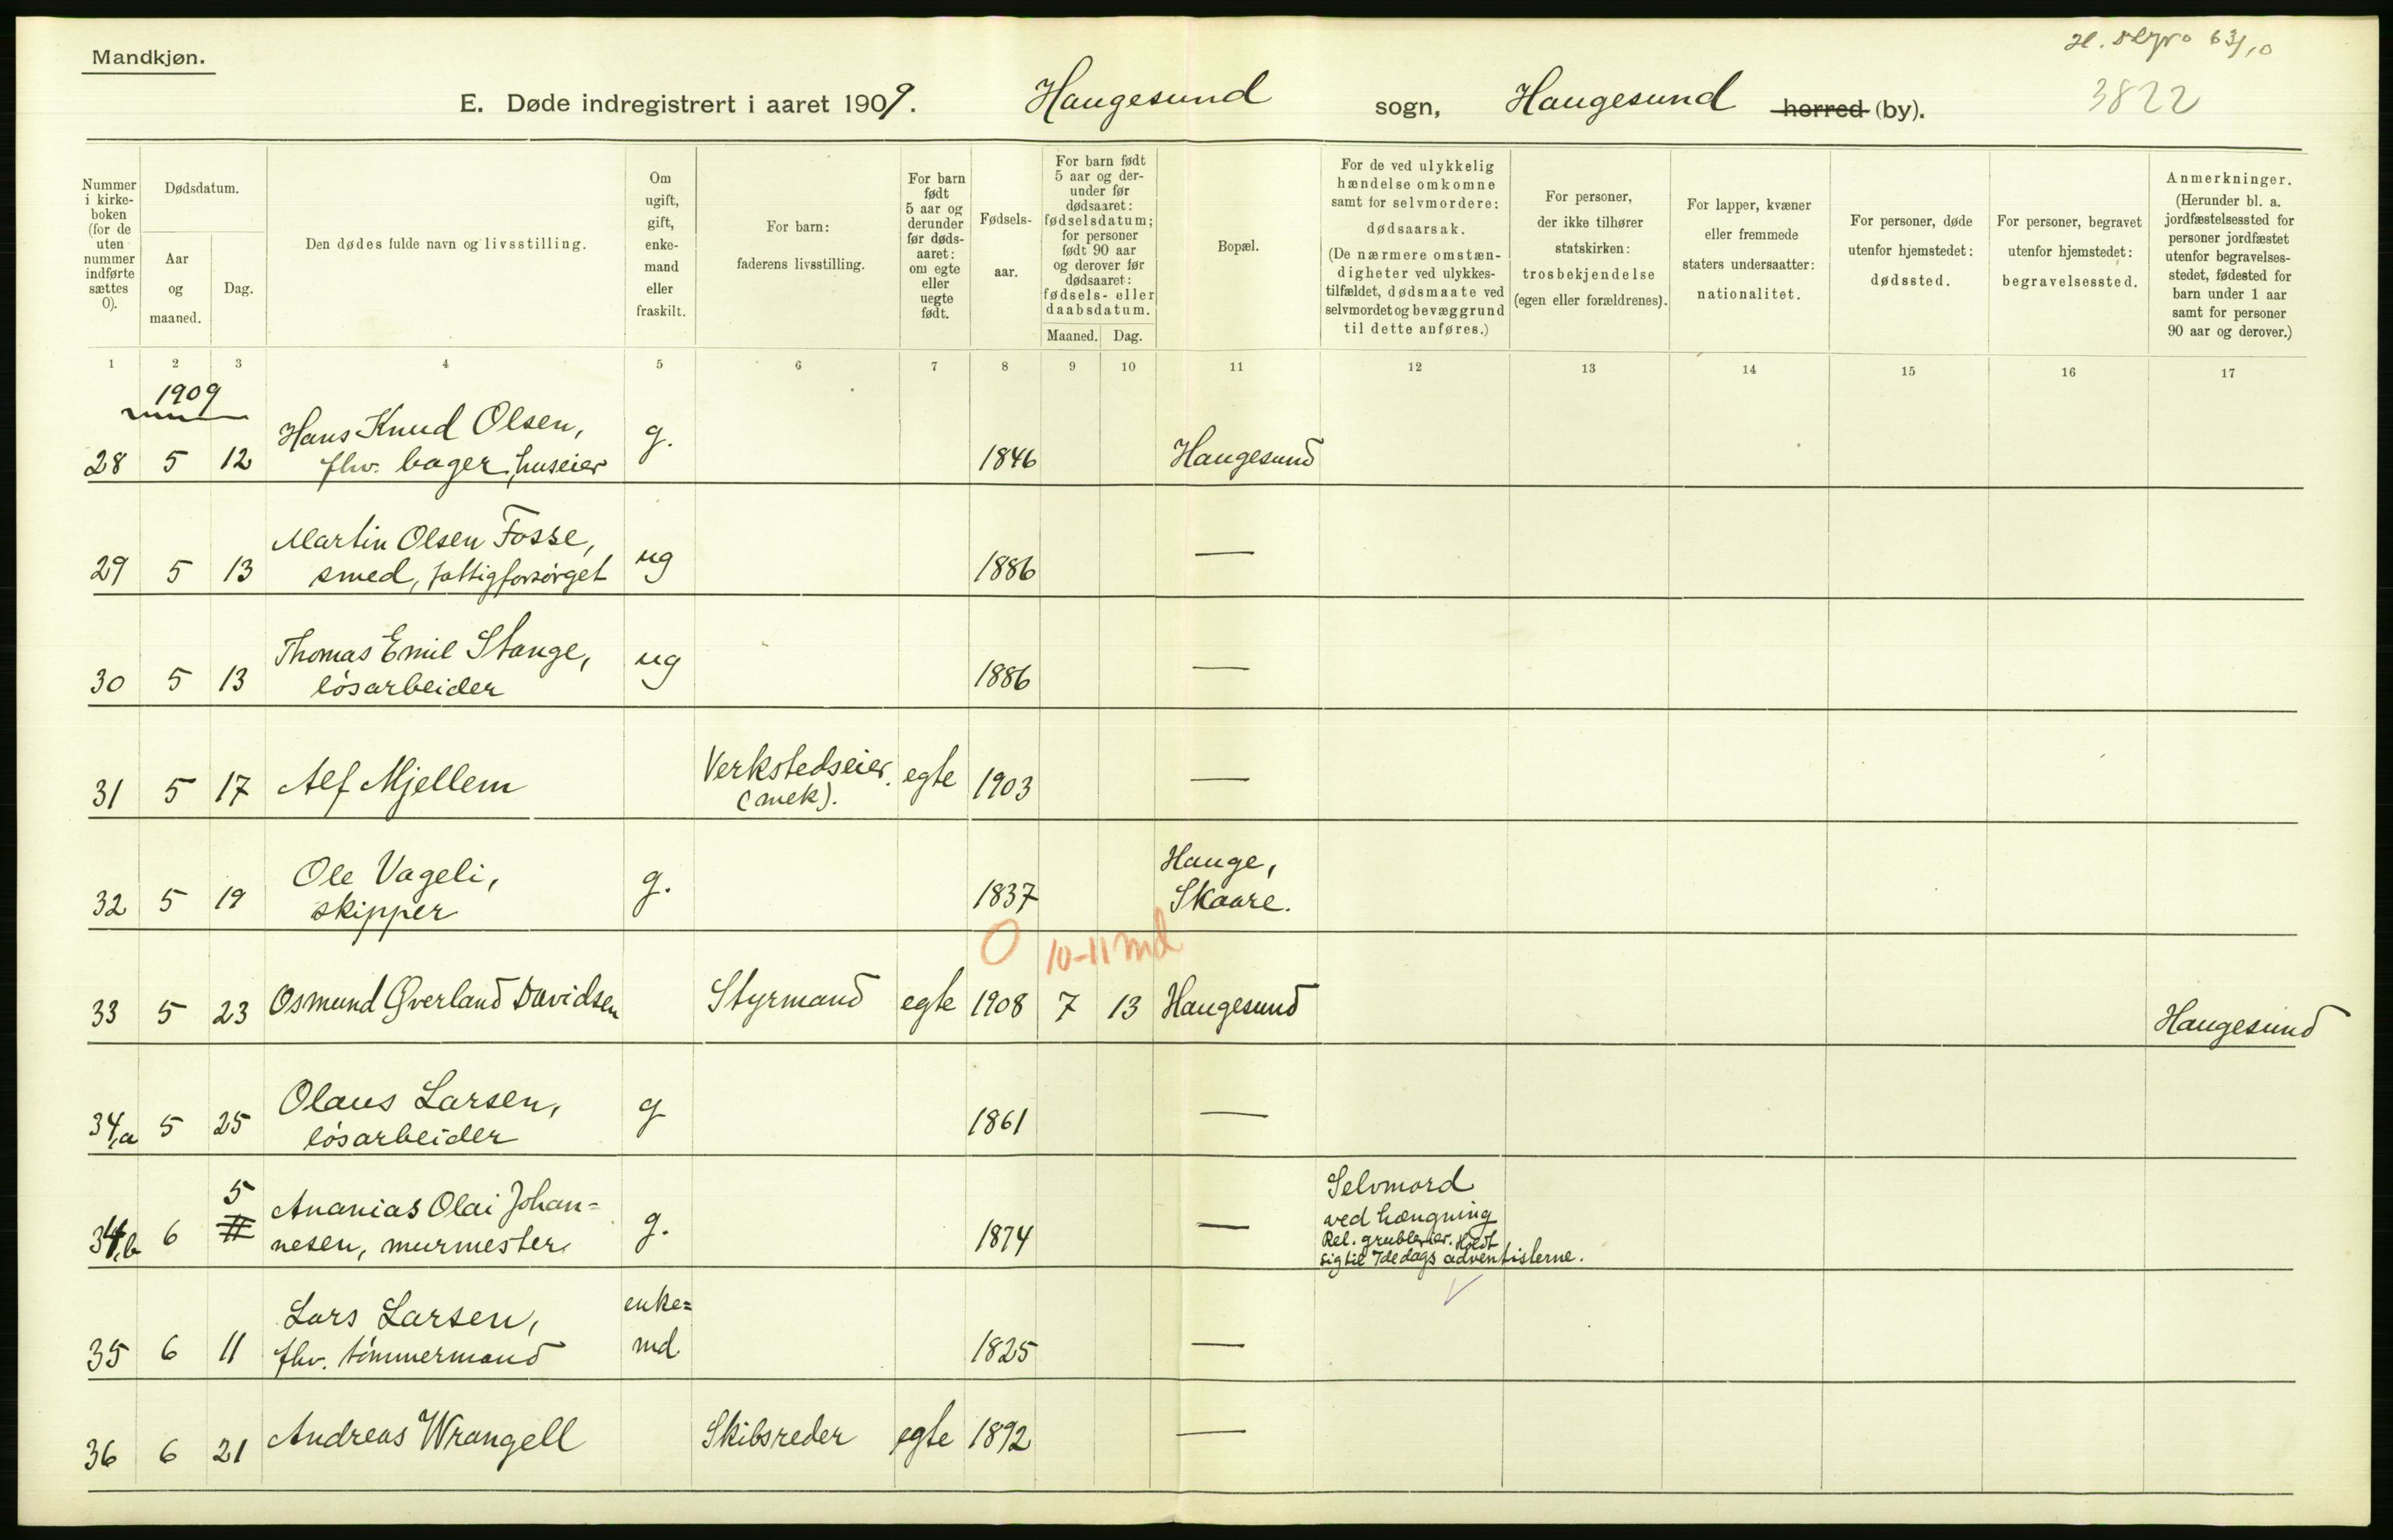 Mandkjøn.
3822
E. Døde indregistrert i aaret 1909. Haugesund sogn, Haugesund herred (by).
Nummer i kirkeboken (for de uten nummer indførte sættes 0).
Dødsdatum.
Aar og maaned.
Dag.
Den dødes fulde navn og livsstilling.
Om ugift, gift, enkemand eller fraskilt.
For barn: faderens livsstilling.
For barn født 5 aar og derunder før dødsaaret: om egte eller uegte født.
Fødselsaar.
For barn født 5 aar og derunder før dødsaaret: fødselsdatum; for personer født 90 aar og derover før dødsaaret: fødsels- eller daabsdatum.
Maaned. Dag.
Bopæl.
For de ved ulykkelig hændelse omkomne samt for selvmordere: dødsaarsak. (De nærmere omstændigheter ved ulykkestilfældet, dødsmaate ved selvmordet og bevæggrund til dette anføres.)
For personer, der ikke tilhører statskirken: trosbekjendelse (egen eller forældrenes).
For lapper, kvæner eller fremmede staters undersaatter: nationalitet.
For personer, døde utenfor hjemstedet: dødssted.
For personer, begravet utenfor hjemstedet: begravelsessted.
Anmerkninger. (Herunder bl. a. jordfæstelsessted for personer jordfæstet utenfor begravelsesstedet, fødested for barn under 1 aar samt for personer 90 aar og derover.)
1 2 3 4 5 6 7 8 9 10 11 12 13 14 15 16 17
1909
Hans Knud Olsen, g.
28 5 12 fhv. bager, huseier 1846 Haugesund
Martin Olsen Fosse, ug —
29 5 13 smed, fattigforsørget 1886
Thomas Emil Stange, ug —
30 5 13 løsarbeider 1886
31 5 17 Alf Mjellem Verkstedseier egte 1903 —
(mek).
Ole Vageli, g. Hauge,
32 5 19 skipper 1837 Skaare.
0 10-11 md
33 5 23 Osmund Øverland Davidsen Styrmand egte 1908 7 13 Haugesund Haugesund
Olaus Larsen, g —
34,a 5 25 løsarbeider 1861
5 Ananias Olai Johan= Selvmord
34,b 6 11 nesen, murmester. g. 1874 — ved hængning
Rel. grublerier. Holdt
sig til 7de dags adventisterne.
Lars Larsen, enke=
35 6 11 fhv. tømmermand md. 1825 —
36 6 21 Andreas Wrangell Skibsreder egte 1892 —